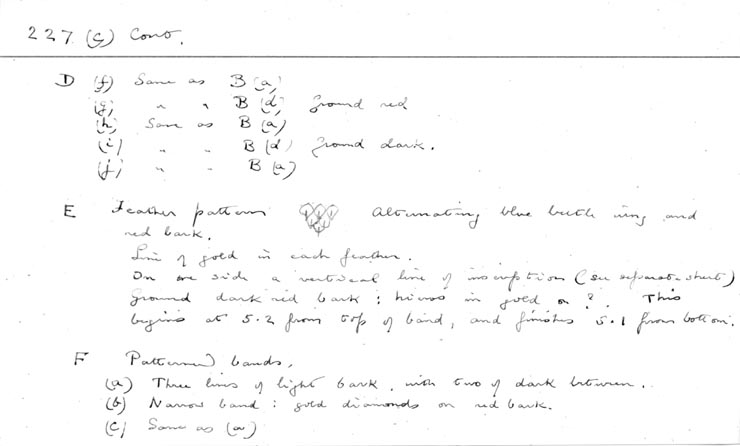 227 (G) Cont.
D (f) Same as B (a)
(g) " " B (d) Ground red
(h) Same as B (a)
(i) " " B (d) Ground dark.
(j) " " B (a)
E Feather pattern Alternating blue beetle wing and
red bark.
Line of gold in each feather.
On one side a vertical line of inscription (see separate sheet)
Ground dark red bark : hieros in gold on ?. This
begins at 5.2 from top of band, and finishes 5.1 from bottom.
F Patterned bands.
(a) Three lines of light bark, with two of dark between.
(b) Narrow band : gold diamonds on red bark.
(c) Same as (a)